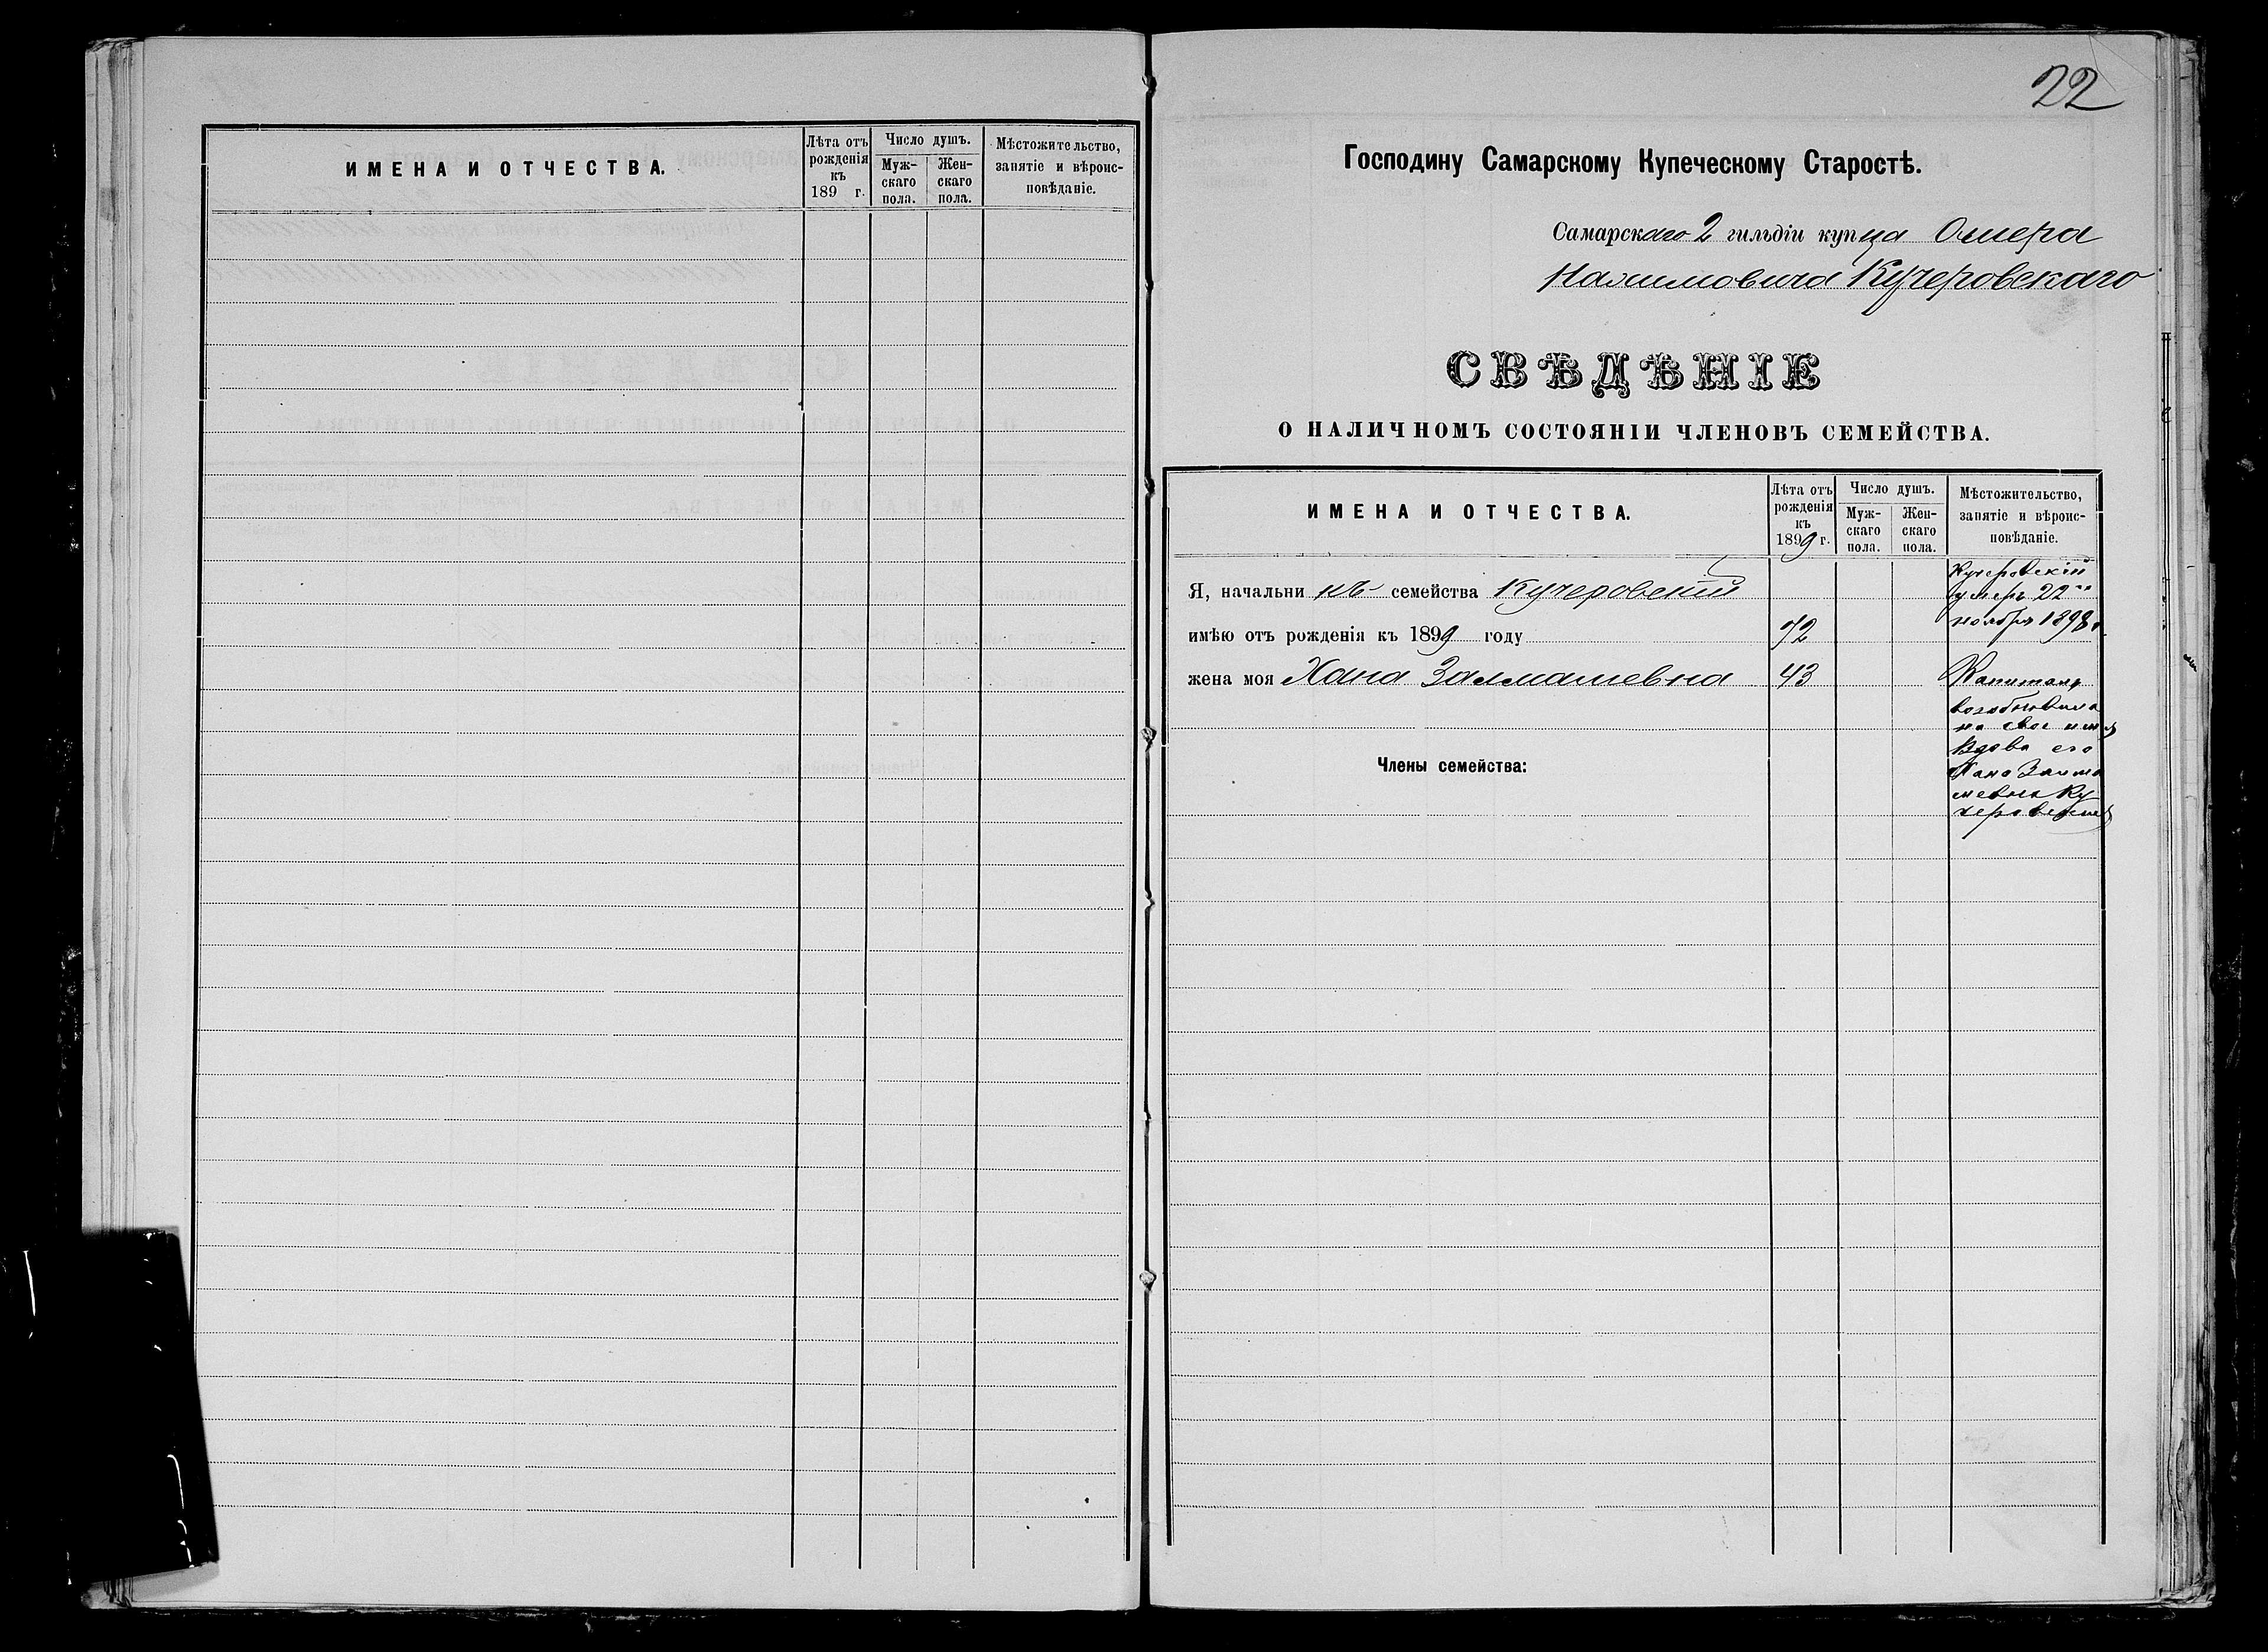 ИМЕНА И ОТЧЕСТВА.
Лѣта отъ рожденія къ 189 г.
Число душъ.
Муж-скаго пола.
Жен-скаго пола.
Мѣстожительство, занятіе и вѣроис-повѣданіе.
22
Господину Самарскому Купеческому Старостѣ.
Самарскаго 2 гильдіи купца Омера
Нахимовича Кучеровскаго
СВѢДѢНІЕ
О НАЛИЧНОМЪ СОСТОЯНІИ ЧЛЕНОВЪ СЕМЕЙСТВА.
ИМЕНА И ОТЧЕСТВА.
Лѣта отъ рожденія къ 1899 г.
Число душъ.
Муж-скаго пола.
Жен-скаго пола.
Мѣстожительство, занятіе и вѣроис-повѣданіе.
Я, начальникъ семейства Кучеровскій
имѣю отъ рожденія къ 1899 году 72
жена моя Хана Залмановна 43
Члены семейства:
Кучеровскій
умеръ 22го
ноября 1898 г.
Капиталъ
возобновила
на свое имя
вдова его
Хана Залма
Ку
черовская